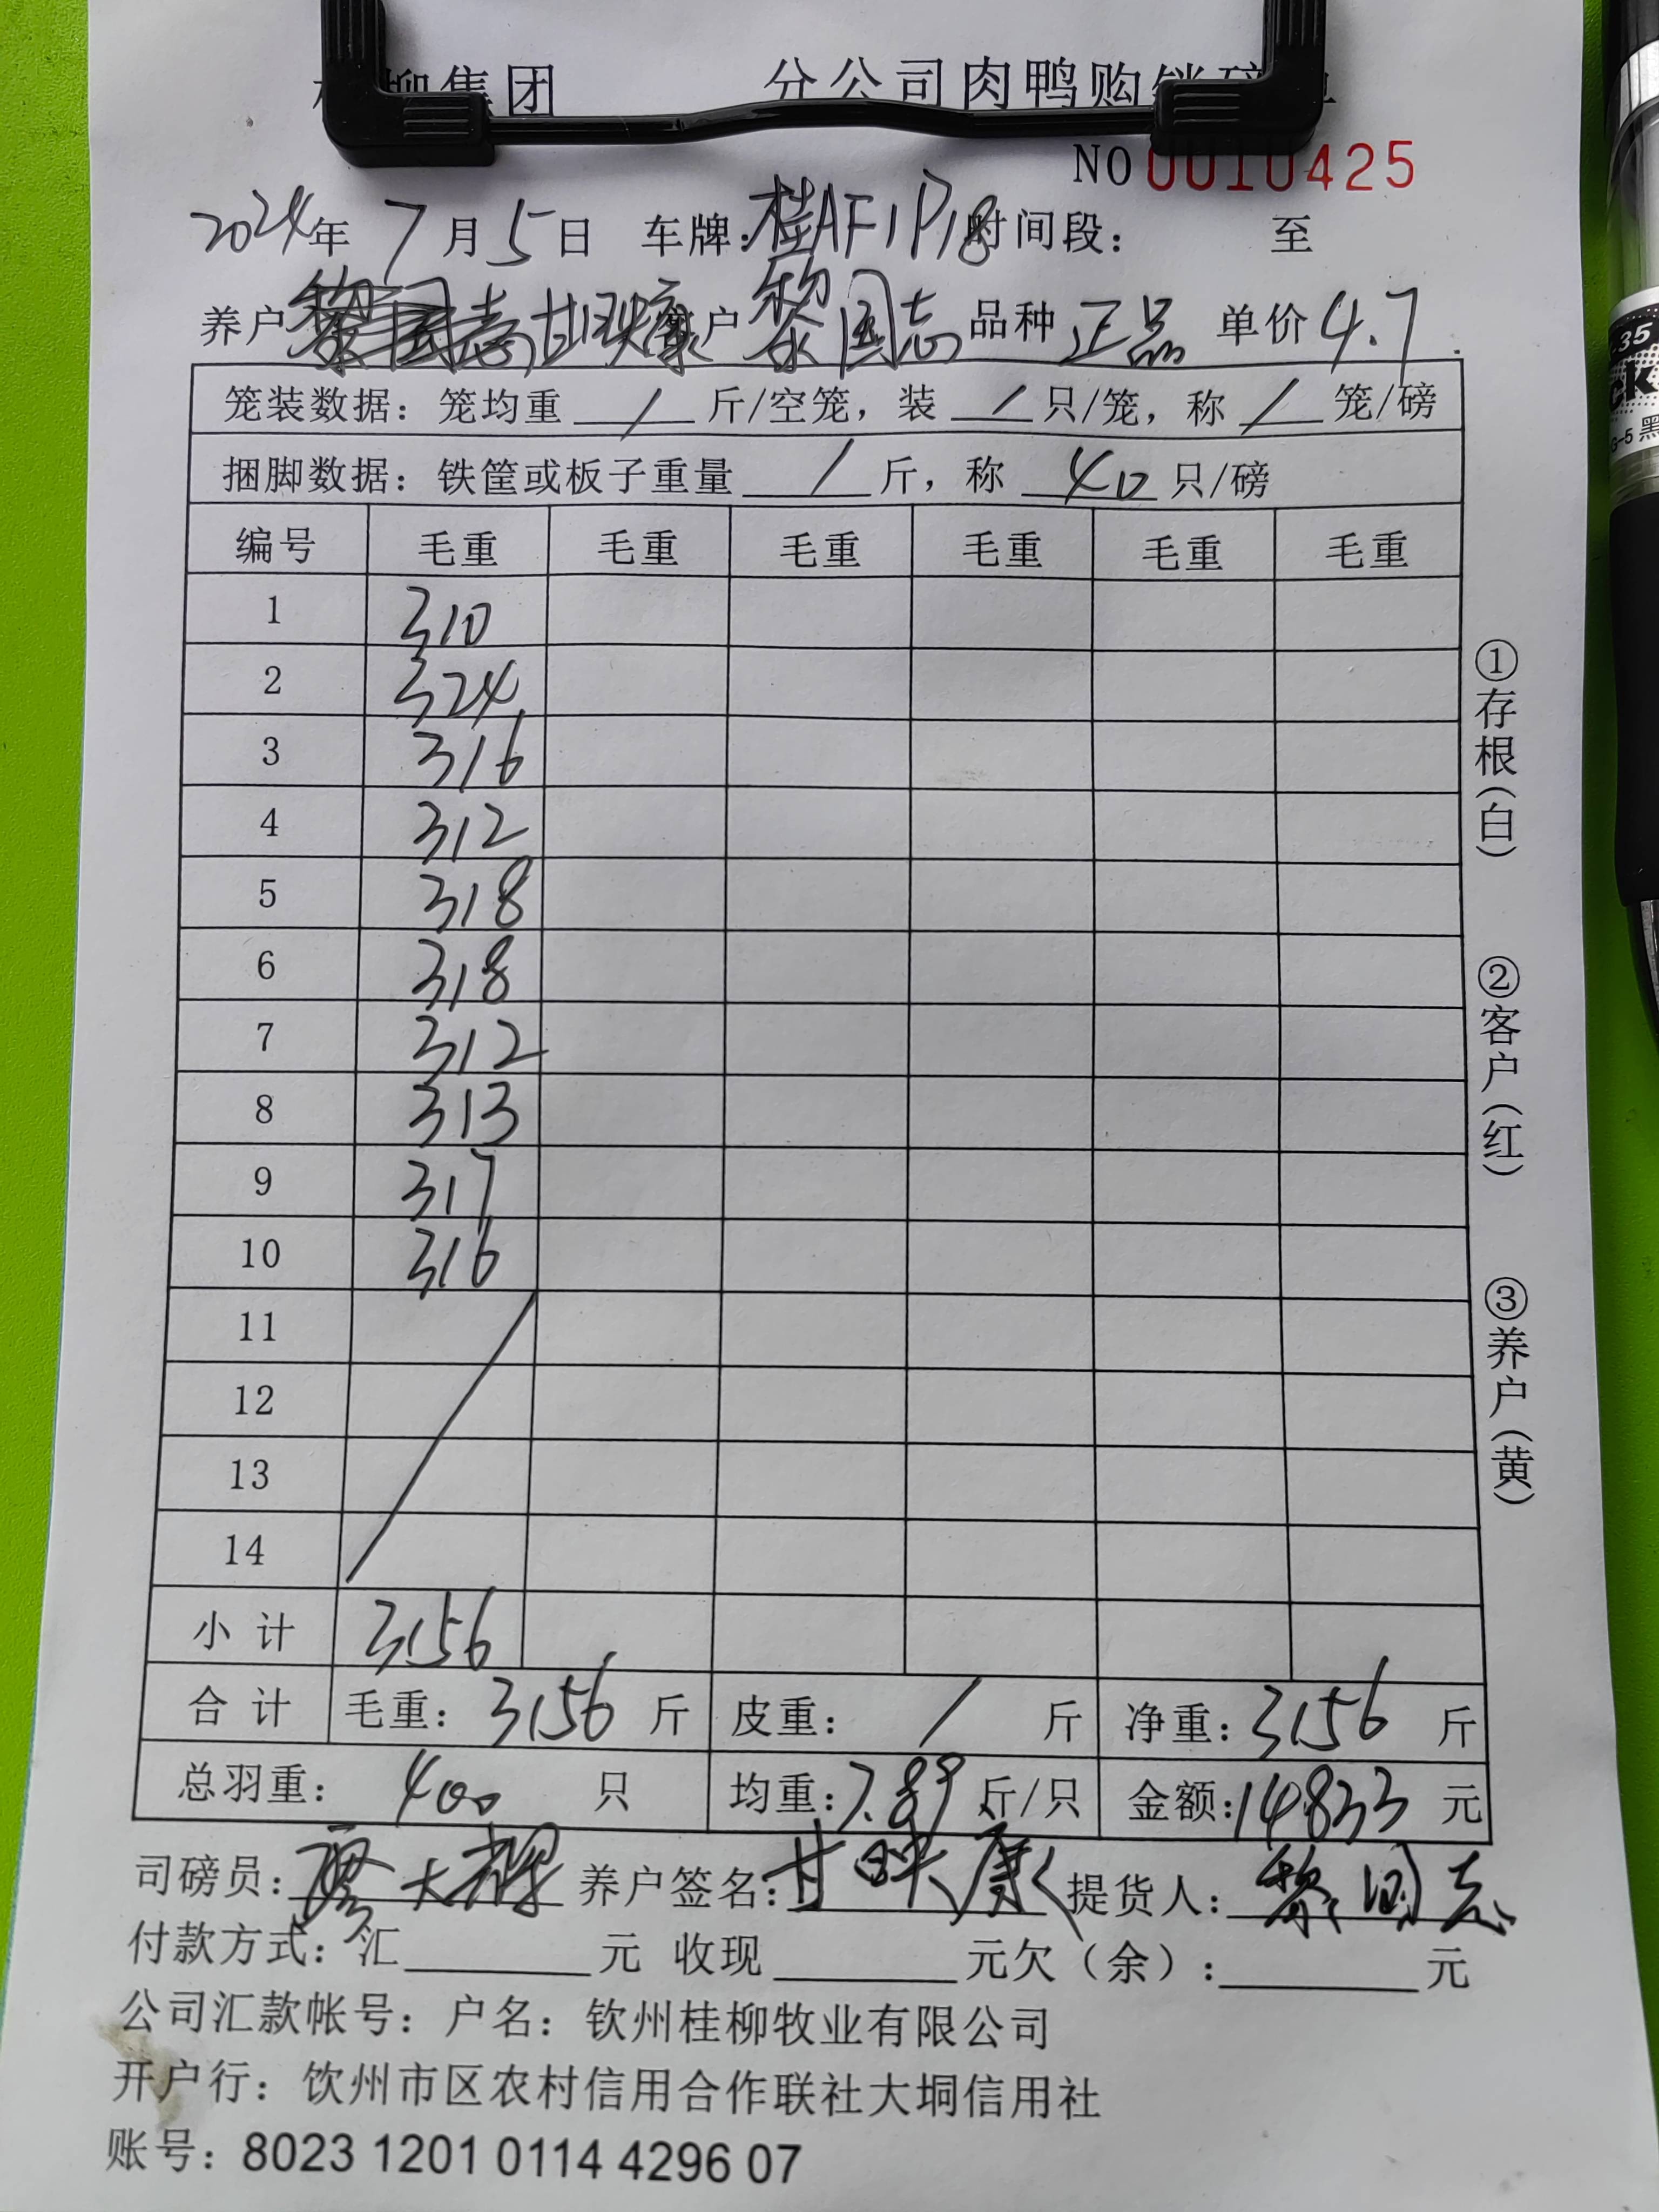 柳集团 分公司肉鸭购销磅单
NO 0010425
2024年 7月5日 车牌:桂AF1P18 时间段: 至
养户 甘映康 户 黎国志 品种 正品 单价 4.7
笼装数据: 笼均重 / 斤/空笼, 装 / 只/笼, 称 / 笼/磅
捆脚数据: 铁筐或板子重量 / 斤, 称 40 只/磅
编号 毛重 毛重 毛重 毛重 毛重 毛重
1 310
2 324
3 316
4 312
5 318
6 318
7 312
8 313
9 317
10 316
11
12
13
14
小计 3156
合计 毛重: 3156 斤 皮重: / 斤 净重: 3156 斤
总羽重: 400 只 均重: 7.89 斤/只 金额: 14833 元
司磅员: 廖大 养户签名: 甘映康 提货人: 黎国志
付款方式: 汇 元 收现 元欠(余): 元
公司汇款帐号: 户名: 钦州桂柳牧业有限公司
开户行: 饮州市区农村信用合作联社大垌信用社
账号: 8023 1201 0114 4296 07
①存根(白)
②客户(红)
③养户(黄)